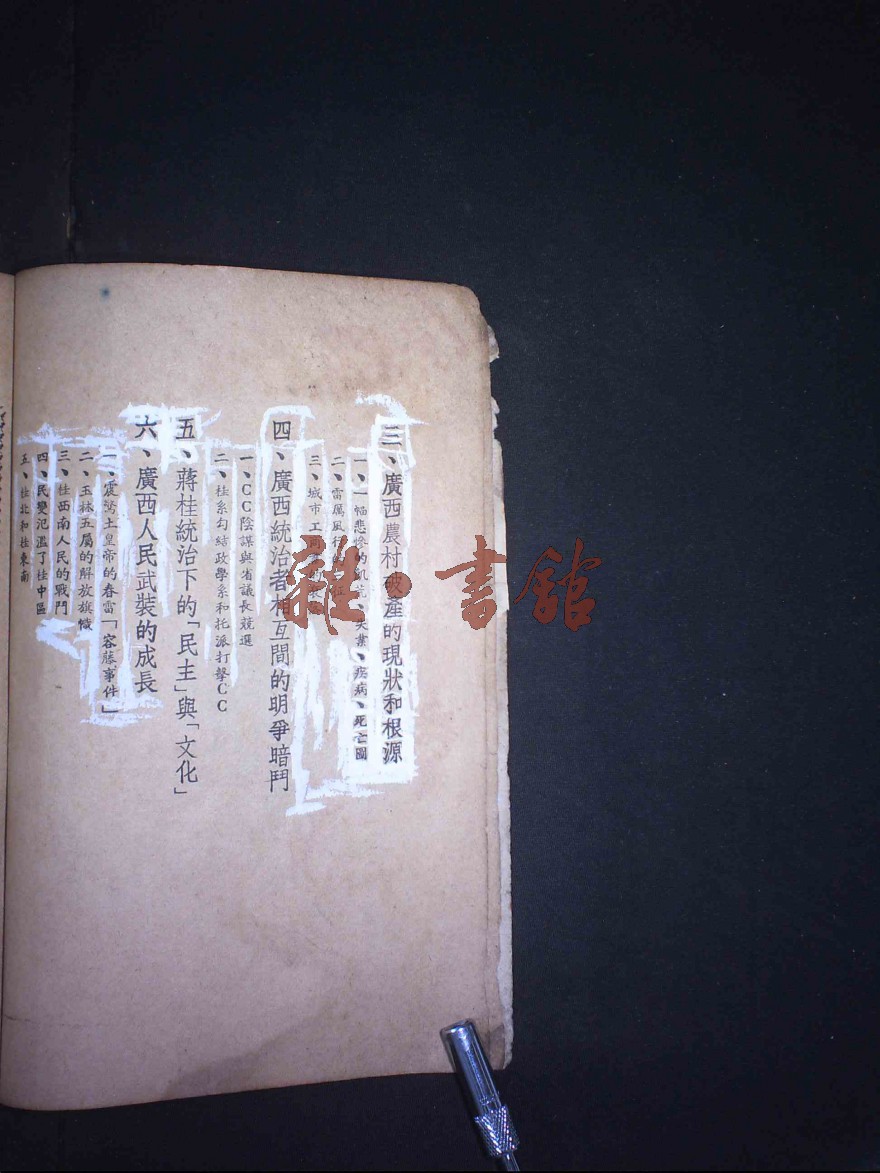 三、廣西農村破產的現狀和根源
一、一幅悲慘的飢荒、失業、疾病、死亡圖
二、雷厲風行的
三、城市工商業的
四、廣西統治者相互間的明爭暗鬥
一、CC陰謀與省議長競選
二、桂系勾結政學系和托派打擊CC
五、蔣桂統治下的「民主」與「文化」
六、廣西人民武裝的成長
一、震驚土皇帝的春雷「容藤事件」
二、玉林五屬的解放旗幟
三、桂西南人民的戰鬥
四、民變氾濫了桂中區
五、桂北和桂東南
雜·書館